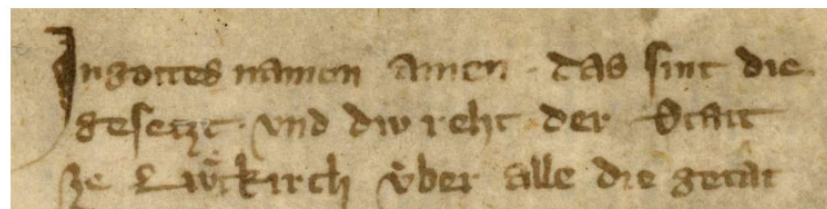 In gottes namen amen · das sint die
gesetzt · vnd diw reht · der Statt
ze Lwͤtkirch vͤber alle die getät